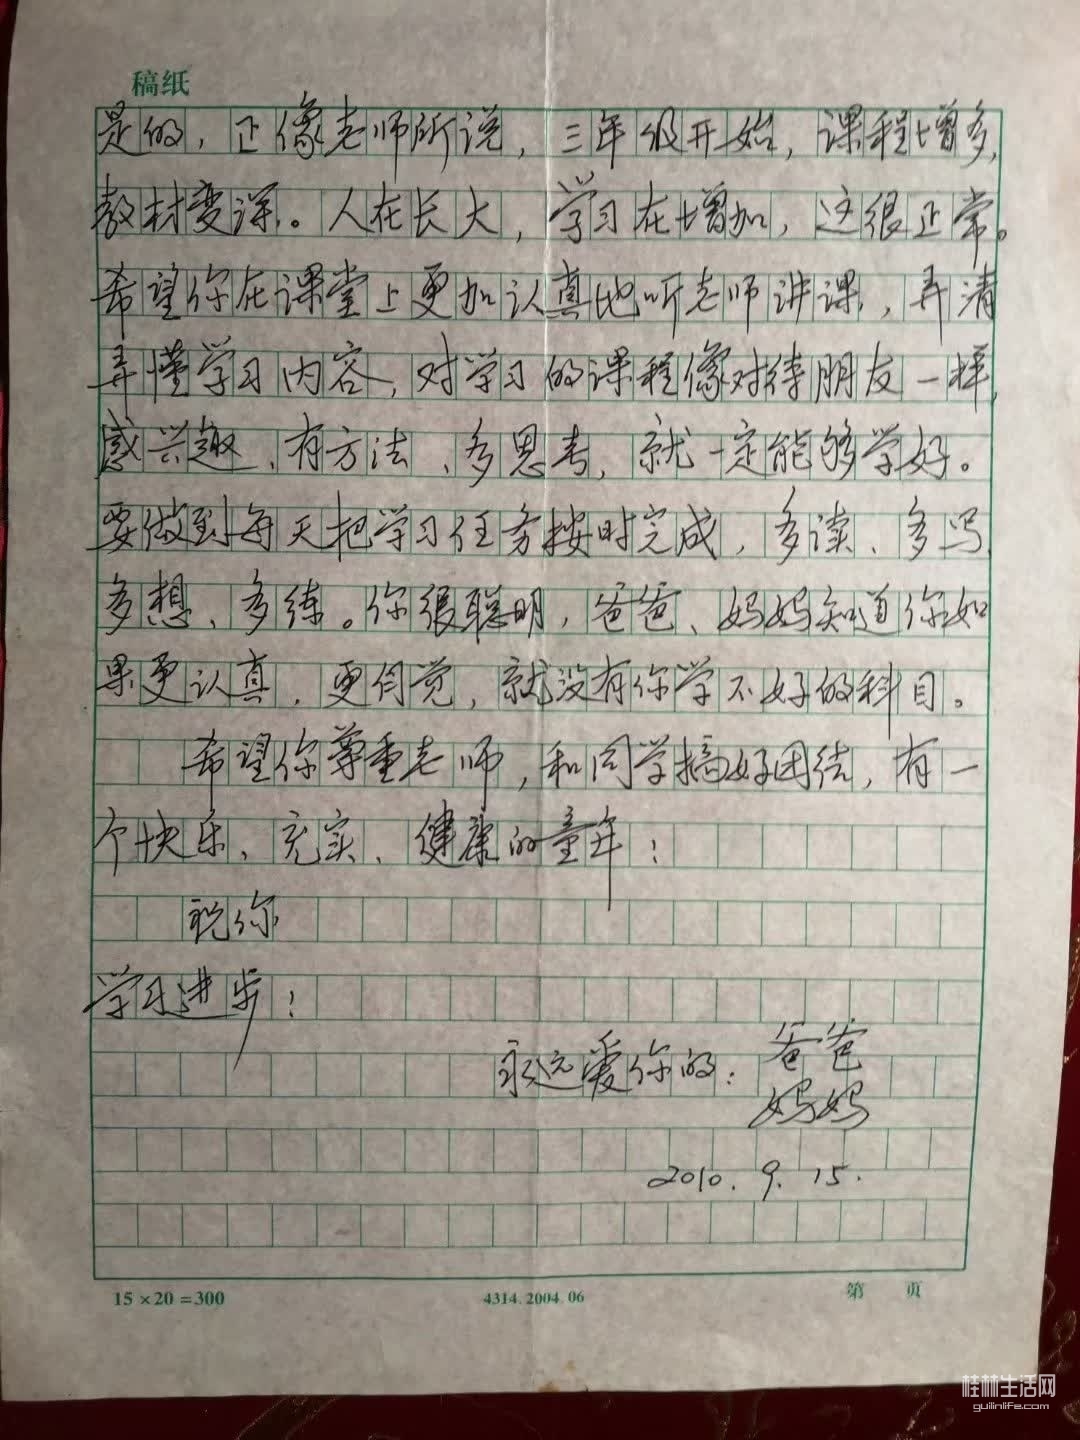 稿纸
是的，正像老师所说，三年级开始，课程增多，
教材变深。人在长大，学习在增加，这很正常。
希望你在课堂上更加认真地听老师讲课，弄清
弄懂学习内容，对学习的课程像对待朋友一样，
感兴趣、有方法、多思考，就一定能够学好。
要做到每天把学习任务按时完成，多读、多写
多想、多练。你很聪明，爸爸、妈妈知道你如
果更认真，更自觉，就没有你学不好的科目。
希望你尊重老师，和同学搞好团结，有一
个快乐、充实、健康的童年！
祝你
学习进步！
永远爱你的：爸爸
妈妈
2010.9.15.
15×20=300
4314.2004.06
第 页
桂林生活网
guilinlife.com